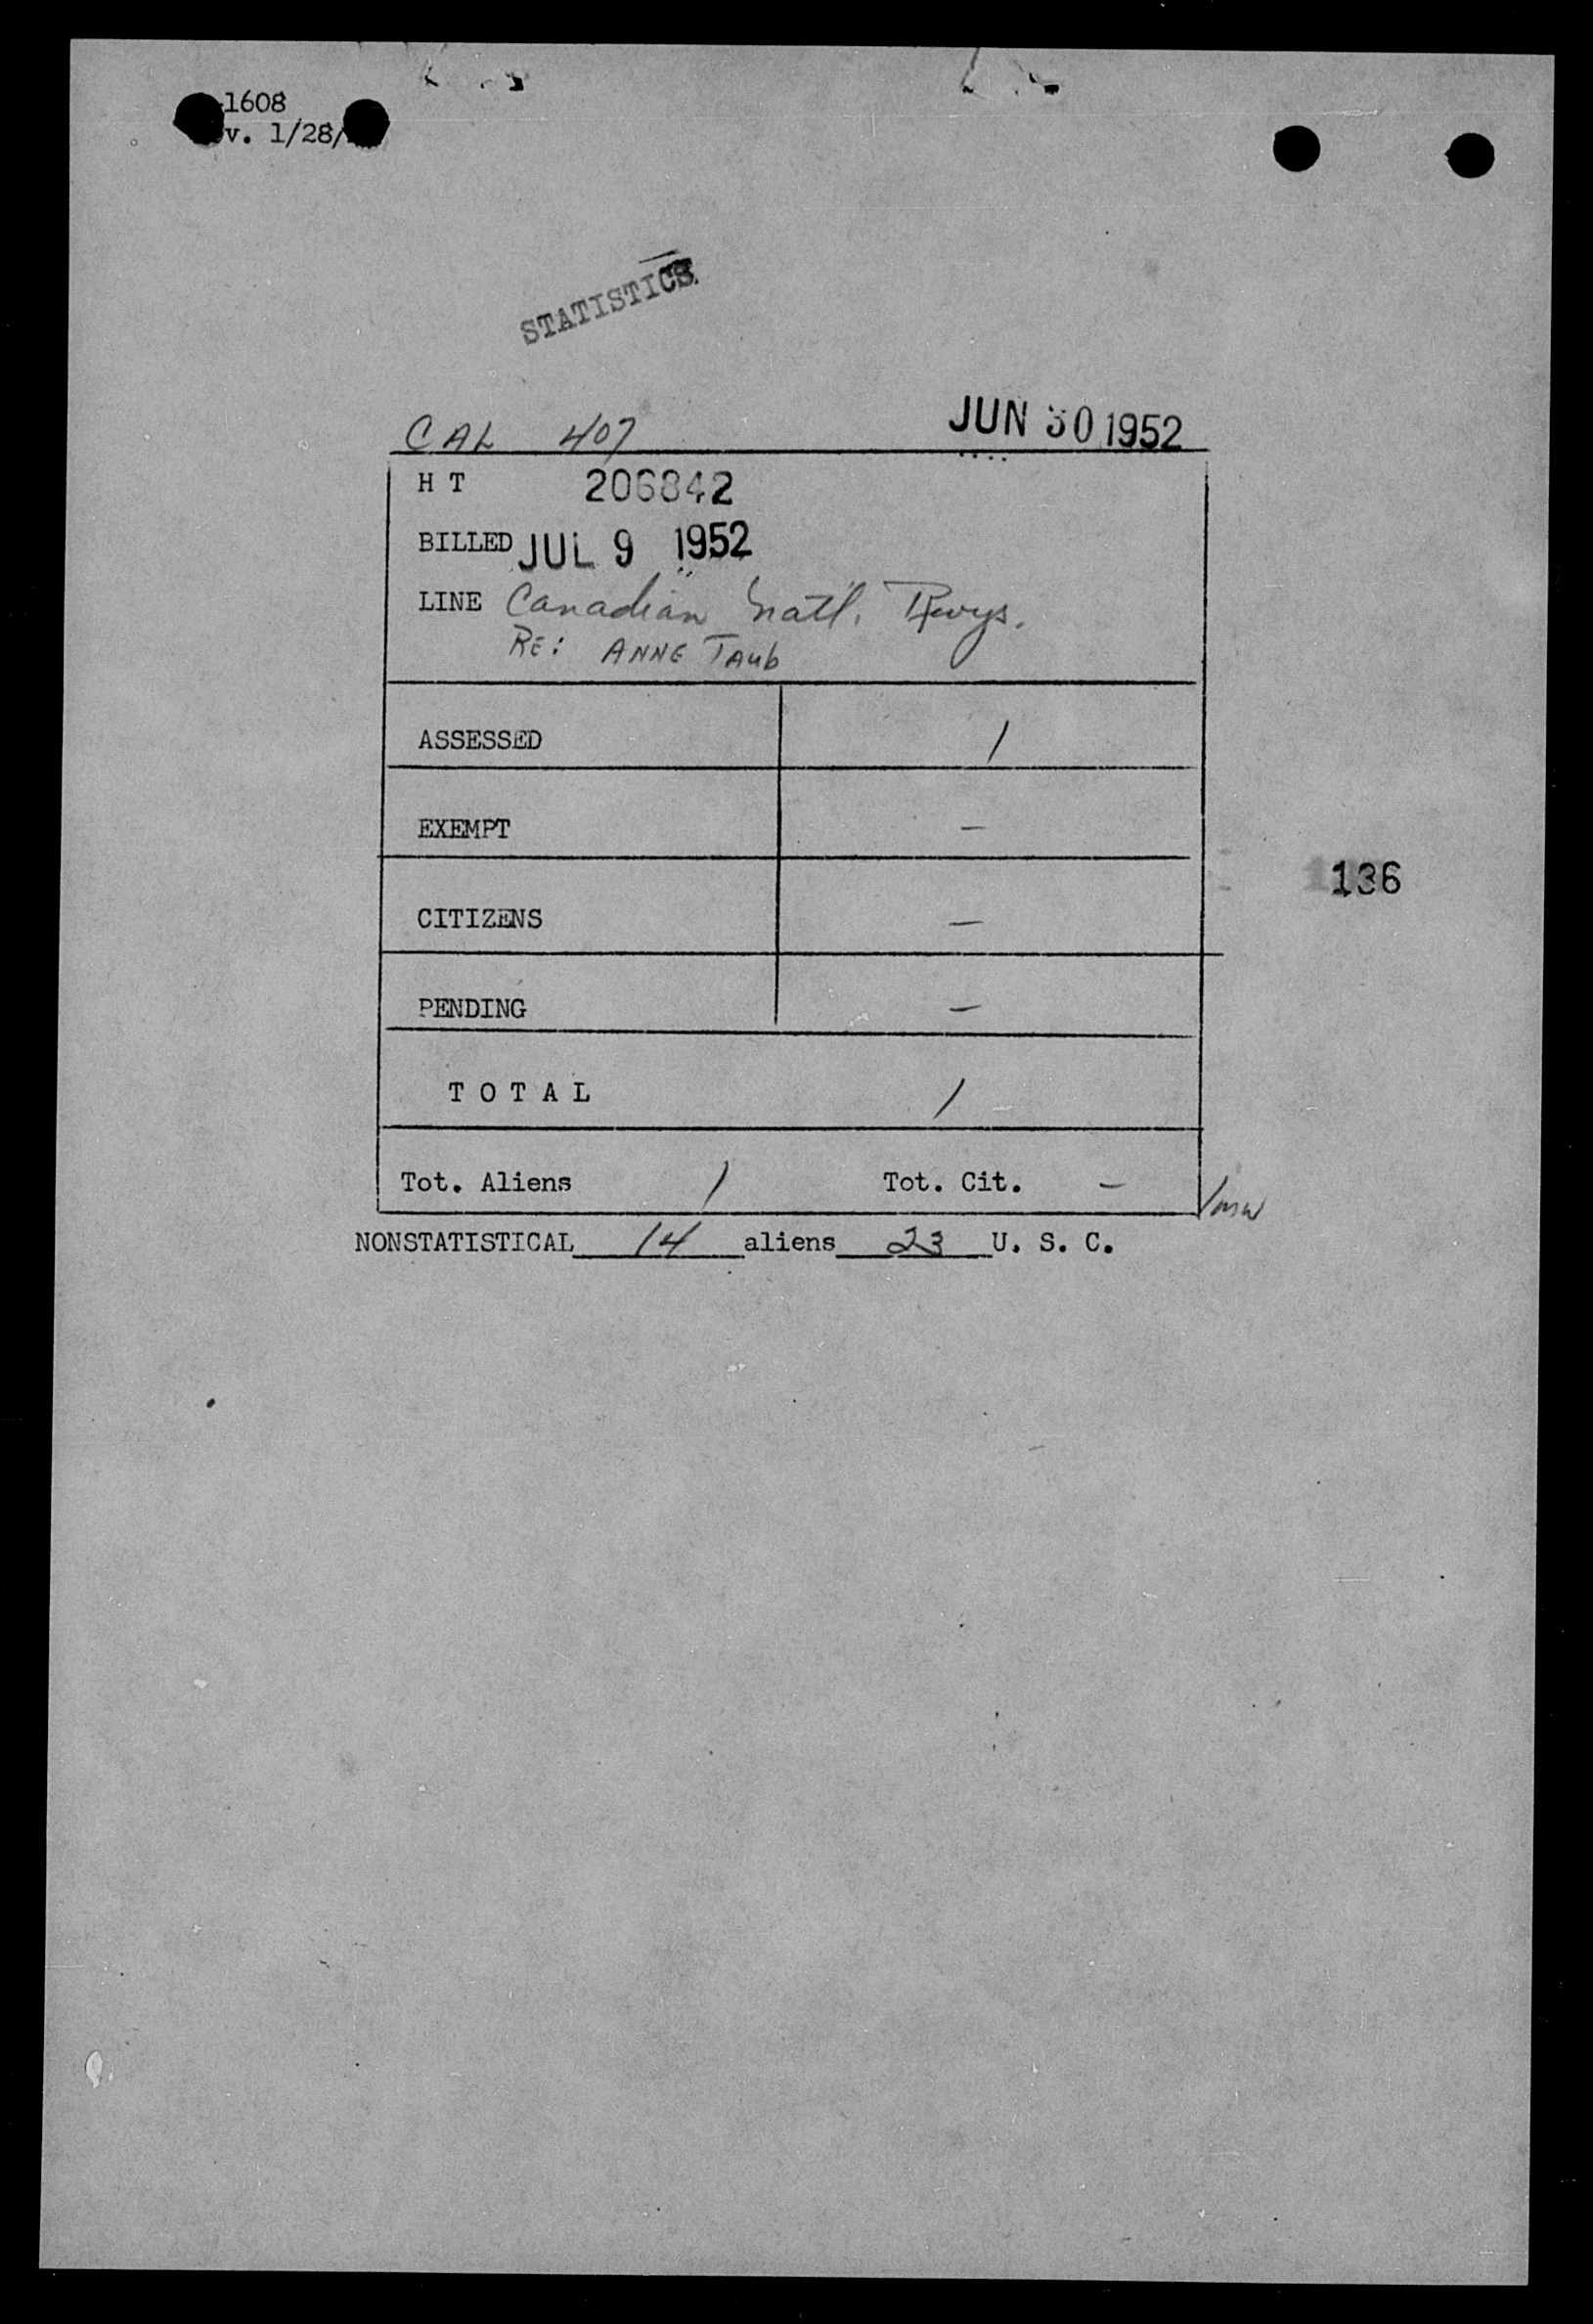 1608
v. 1/28/
STATISTICS
CAL 407 JUN 30 1952
H T 206842
BILLED JUL 9 1952
LINE Canadian Natl. Rwys.
RE: ANNE TAub
ASSESSED 1
EXEMPT –
136
CITIZENS –
PENDING –
T O T A L 1
Tot. Aliens 1 Tot. Cit. –
NONSTATISTICAL 14 aliens 23 U. S. C.